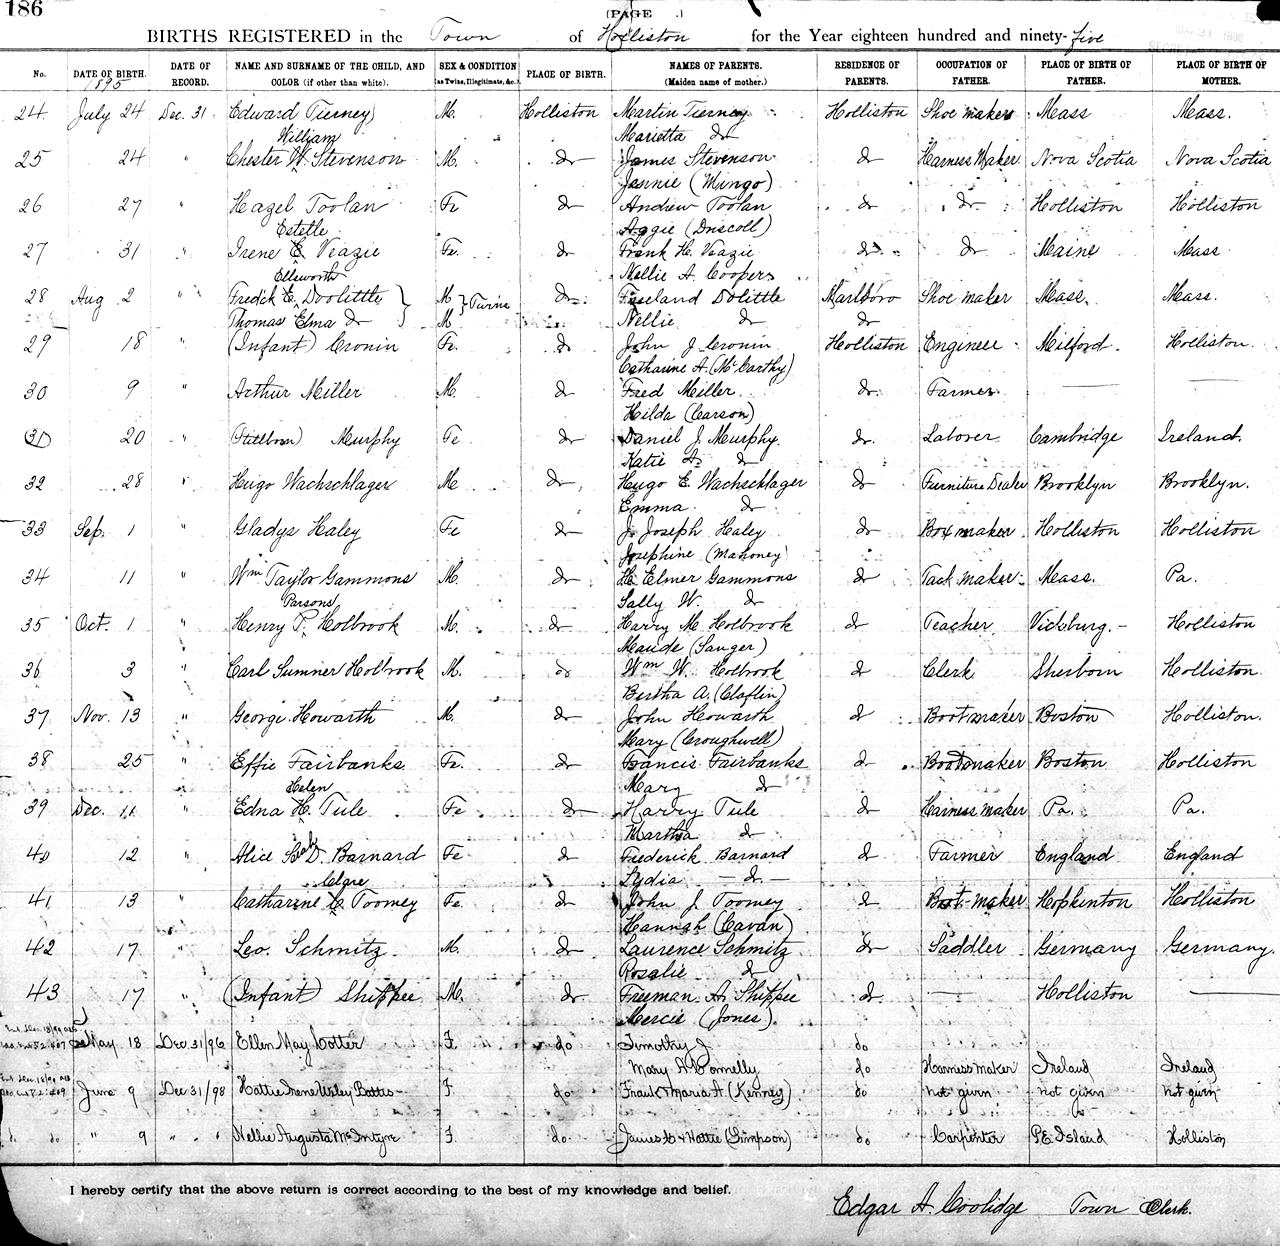 186
(PAGE .)
BIRTHS REGISTERED in the Town of Holliston for the Year eighteen hundred and ninety-five
No. DATE OF BIRTH. DATE OF RECORD. NAME AND SURNAME OF THE CHILD, AND COLOR (if other than white). SEX & CONDITION (as Twins, Illegitimate, &c.) PLACE OF BIRTH. NAMES OF PARENTS. (Maiden name of mother.) RESIDENCE OF PARENTS. OCCUPATION OF FATHER. PLACE OF BIRTH OF FATHER. PLACE OF BIRTH OF MOTHER.
1895
24 July 24 Dec. 31 Edward Tierney M. Holliston Martin Tierney Holliston Shoe maker Mass Mass.
William Marietta do
25 24 " Chester W. Stevenson M. do James Stevenson do Harness Maker Nova Scotia Nova Scotia
Jennie (Mingo)
26 27 " Hazel Toolan Fe do Andrew Toolan do do Holliston Holliston
Estelle Aggie (Driscoll)
27 31 " Irene E. Veazie Fe. do Frank H. Veazie do do Maine Mass
Ellsworth Nellie A. Coopers
28 Aug 2 " Fredick E. Doolittle M Twins do Freeland Dolittle Marlboro Shoe maker Mass. Mass.
Thomas Elma do M Nellie do do
29 18 " (Infant) Cronin Fe. do John J Cronin Holliston Engineer Milford. Holliston.
Catharine A. (McCarthy)
30 9 " Arthur Miller M. do Fred Miller do Farmer
Hilda (Carson)
31 20 " (Stillborn) Murphy Fe do Daniel J. Murphy. do. Laborer Cambridge Ireland.
Katie A. do
32 28 " Hugo Wachschlager M do Hugo E. Wachschlager do Furniture Dealer Brooklyn Brooklyn.
Emma do
33 Sep. 1 " Gladys Haley Fe do J. Joseph Haley do Box maker Holliston Holliston
Josephine (Mahoney)
34 11 " Wm Taylor Gammons M. do H. Elmer Gammons do Tack maker Mass. Pa.
Parsons Sally W. do
35 Oct. 1 " Henry P. Holbrook M. do Harry M Holbrook do Teacher Vicksburg. Holliston
Maude (Sanger)
36 3 " Carl Sumner Holbrook M. do Wm W. Holbrook do Clerk Sherborn Holliston.
Bertha A. (Claflin)
37 Nov. 13 " George Howarth M. do John Howarth do Bootmaker Boston Holliston.
Mary (Croughwell)
38 25 " Effie Fairbanks Fe. do Francis Fairbanks do Bootmaker Boston Holliston
Helen Mary do
39 Dec. 11 " Edna H. Tule Fe do Harry Tule do Harness maker Pa. Pa.
Martha do
40 12 " Alice D. Barnard Fe do Frederick Barnard do Farmer England England
Lydia do
41 13 " Catharine C. Toomey Fe. do John J. Toomey do Boot-maker Hopkinton Holliston
Hannah (Cavan)
42 17 " Leo. Schmitz M. do Laurence Schmitz do Saddler Germany Germany.
Rosalie do
43 17 " (Infant) Shippee M. do Freeman A. Shippee do. Holliston
Mercie (Jones).
May 18 Dec. 31/96 Ellen May Cotter F. do Timothy J. do
Mary A Donnelly Harness maker Ireland Ireland
June 9 Dec 31/98 Hattie Irene Bettis F. do Frank & Maria A. (Kenney) do not given not given not given
" 9 " " Nellie Augusta McIntyre F. do James & Hattie (Simpson) do Carpenter P.E. Island Holliston
I hereby certify that the above return is correct according to the best of my knowledge and belief.
Edgar A. Coolidge Town Clerk.